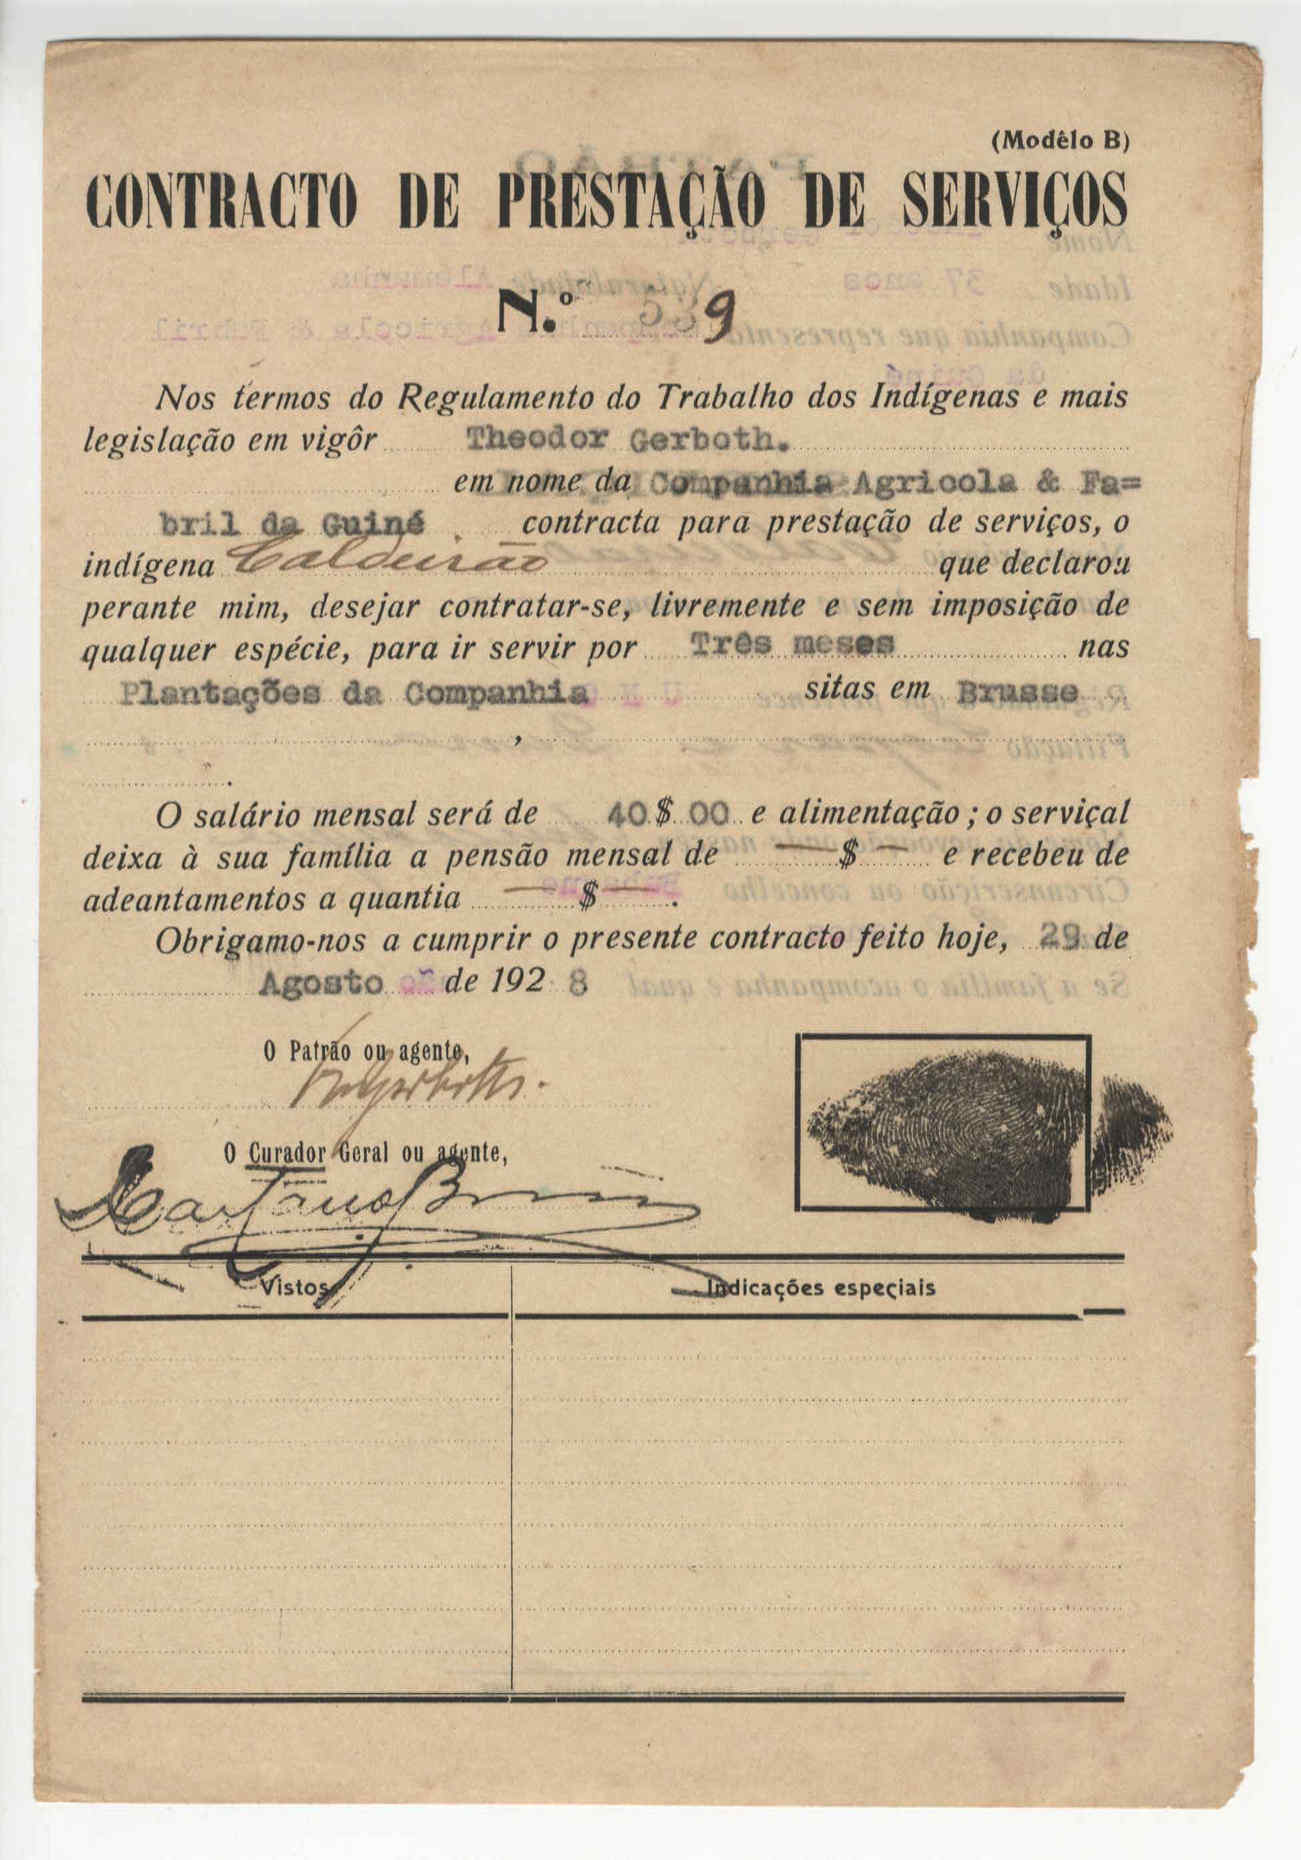 (Modêlo B)
CONTRACTO DE PRESTAÇÃO DE SERVIÇOS
N.º
Nos termos do Regulamento do Trabalho dos Indígenas e mais
legislação em vigôr Theodor Gerboth.
em nome da Companhia Agricola & Fa=
bril da Guiné contracta para prestação de serviços, o
indígena Caldeirão que declarou
perante mim, desejar contratar-se, livremente e sem imposição de
qualquer espécie, para ir servir por Três meses nas
Plantações da Companhia sitas em Brusse
,
.
O salário mensal será de 40$00 e alimentação; o serviçal
deixa à sua família a pensão mensal de —$— e recebeu de
adeantamentos a quantia —$—.
Obrigamo-nos a cumprir o presente contracto feito hoje, 29 de
Agosto de 1928
O Patrão ou agente,
O Curador Geral ou agente,
Vistos
Indicações especiais